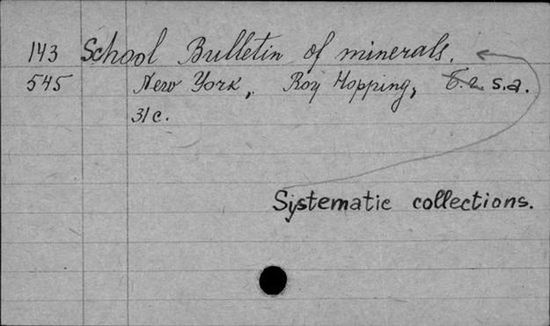 143 School Bulletin of minerals.
545 New York, Roy Hopping, б.г. s.a.
31 с.
Systematic collections.